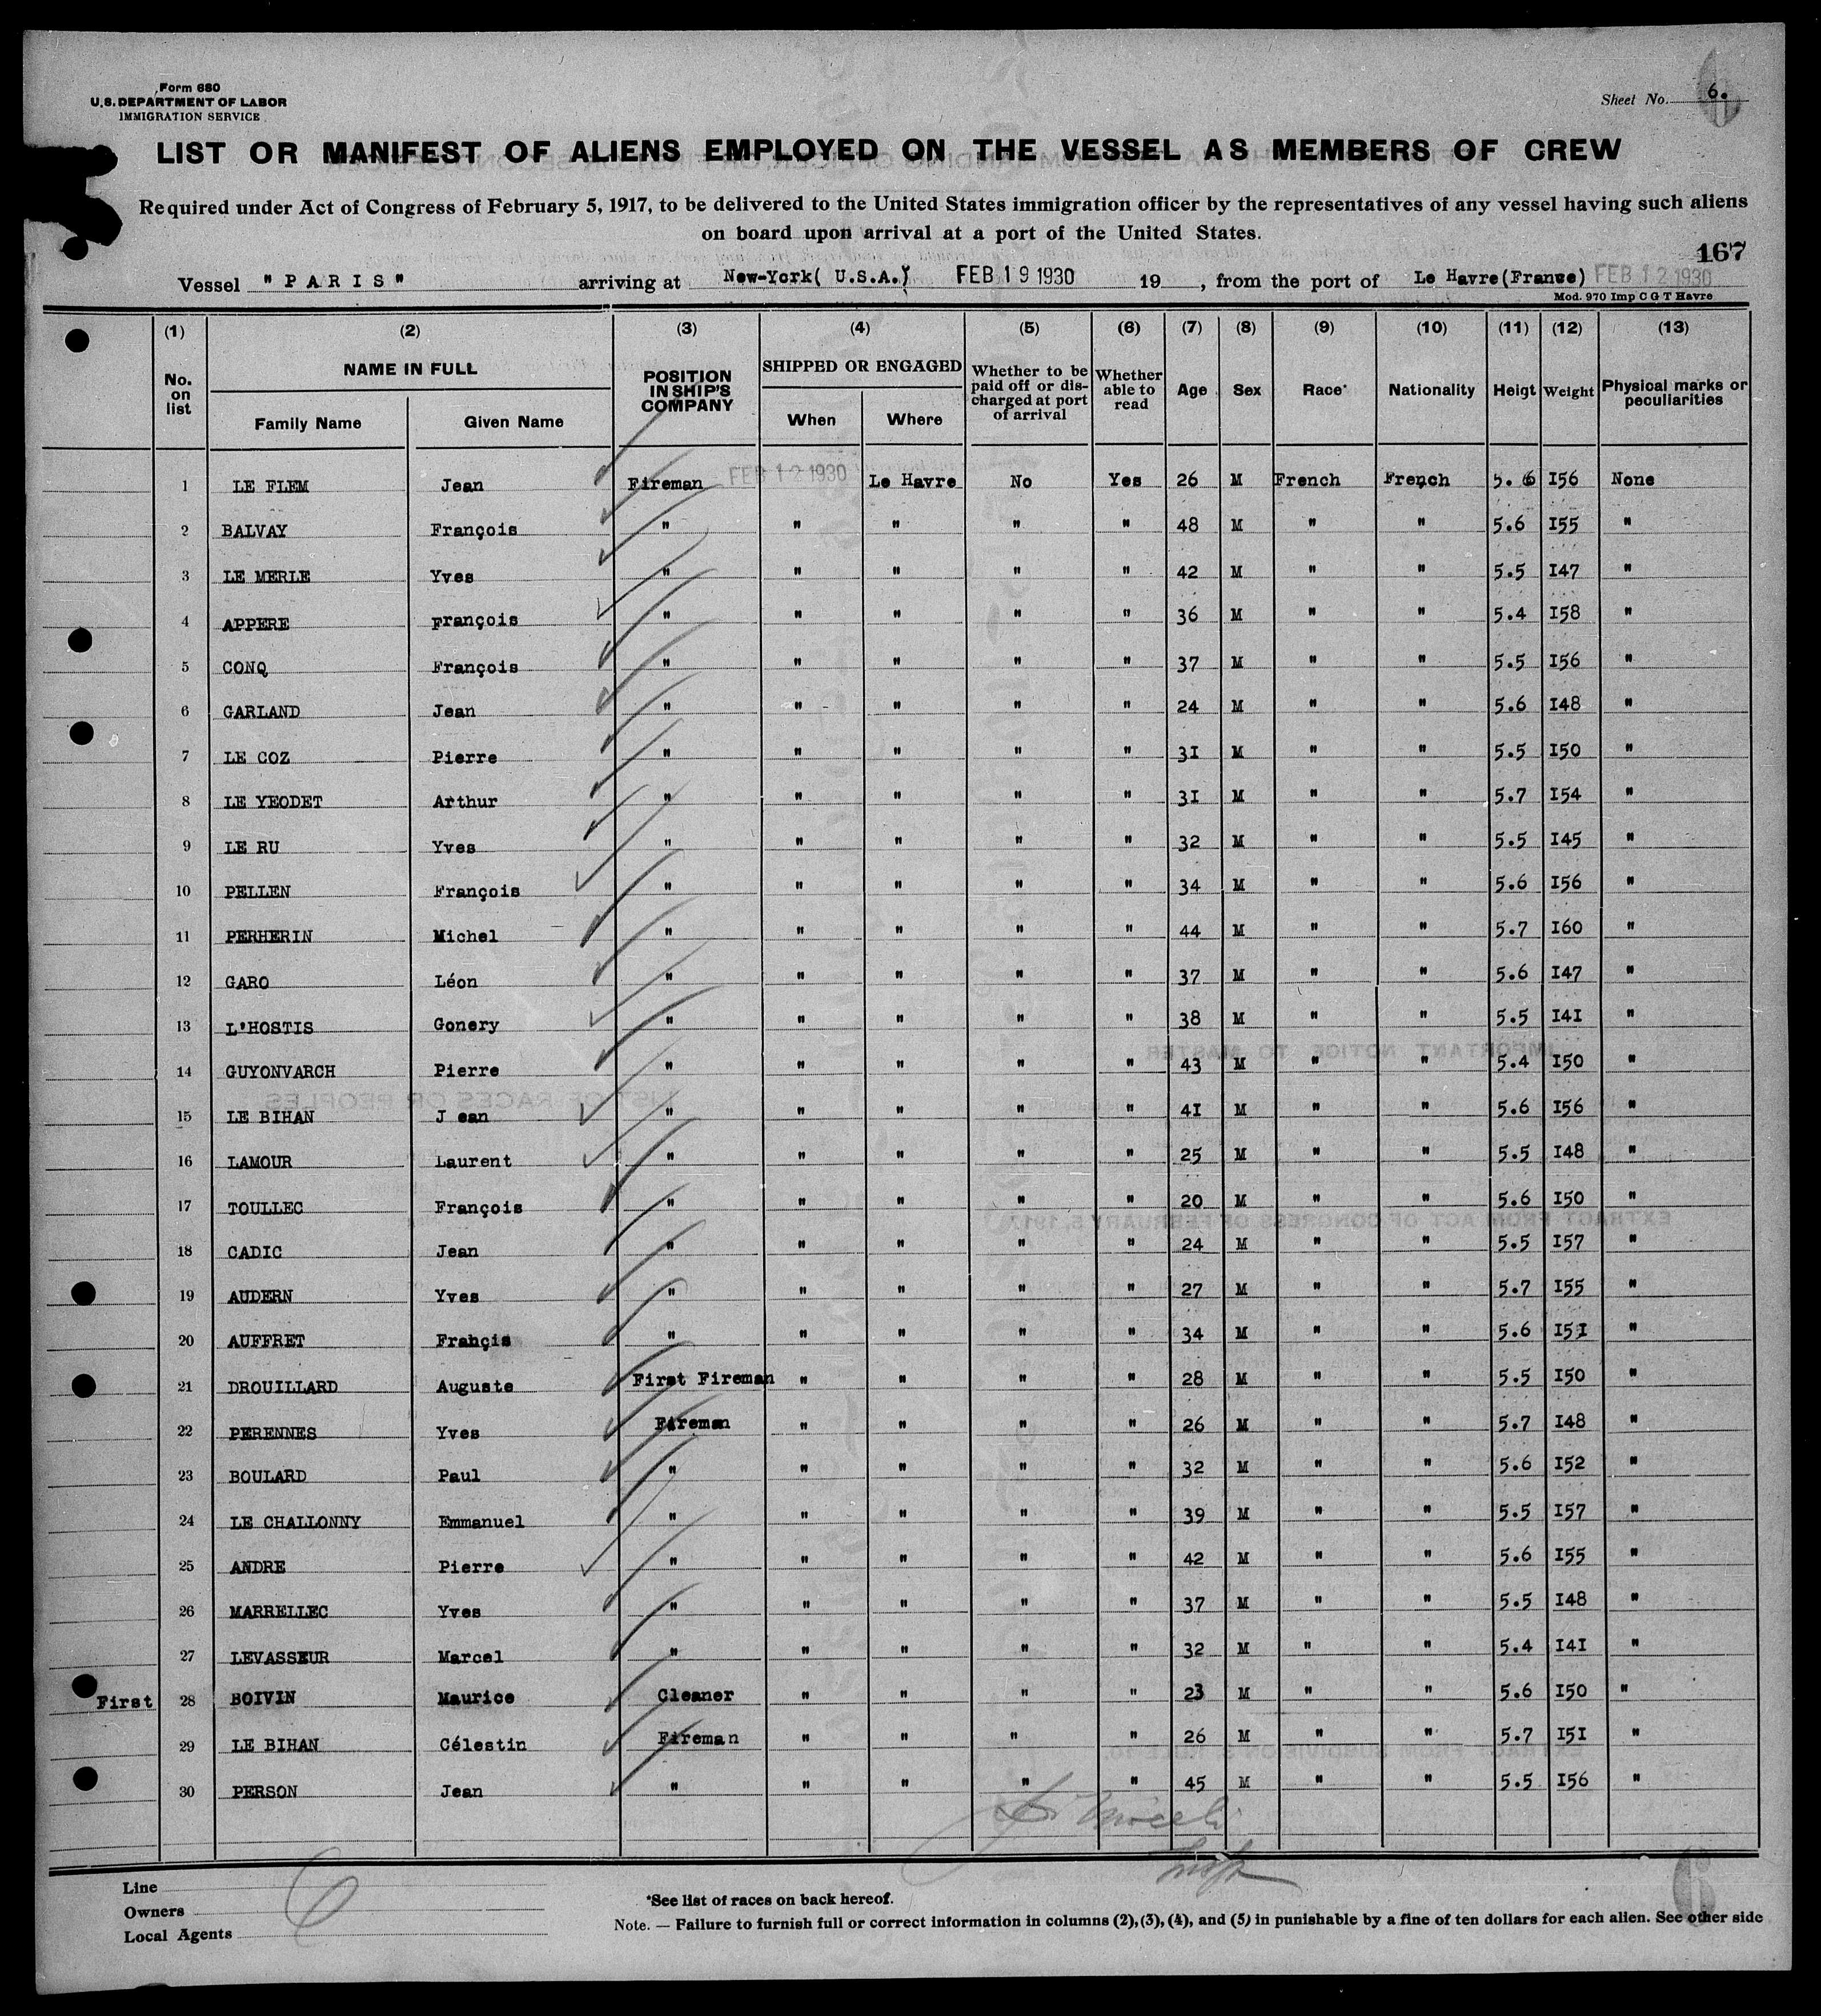 Form 680
U.S. DEPARTMENT OF LABOR
IMMIGRATION SERVICE
Sheet No. 6.
LIST OR MANIFEST OF ALIENS EMPLOYED ON THE VESSEL AS MEMBERS OF CREW
Required under Act of Congress of February 5, 1917, to be delivered to the United States immigration officer by the representatives of any vessel having such aliens
on board upon arrival at a port of the United States.
167
Vessel "PARIS" arriving at New-York( U.S.A.) FEB 19 1930 19 , from the port of Le Havre(France) FEB 12 1930
Mod. 970 Imp C G T Havre
(1) (2) (3) (4) (5) (6) (7) (8) (9) (10) (11) (12) (13)
No. on list NAME IN FULL Family Name Given Name POSITION IN SHIP'S COMPANY SHIPPED OR ENGAGED When Where Whether to be paid off or discharged at port of arrival Whether able to read Age Sex Race* Nationality Heigt Weight Physical marks or peculiarities
1 LE FLEM Jean Fireman FEB 12 1930 Le Havre No Yes 26 M French French 5. 6 I56 None
2 BALVAY François " " " " " 48 M " " 5.6 I55 "
3 LE MERLE Yves " " " " " 42 M " " 5.5 I47 "
4 APPERE François " " " " " 36 M " " 5.4 I58 "
5 CONQ François " " " " " 37 M " " 5.5 I56 "
6 GARLAND Jean " " " " " 24 M " " 5.6 I48 "
7 LE COZ Pierre " " " " " 3I M " " 5.5 I50 "
8 LE YEODET Arthur " " " " " 3I M " " 5.7 I54 "
9 LE RU Yves " " " " " 32 M " " 5.5 I45 "
10 PELLEN François " " " " " 34 M " " 5.6 I56 "
11 PERHERIN Michel " " " " " 44 M " " 5.7 I60 "
12 GARO Léon " " " " " 37 M " " 5.6 I47 "
13 L'HOSTIS Gonery " " " " " 38 M " " 5.5 I4I "
14 GUYONVARCH Pierre " " " " " 43 M " " 5.4 I50 "
15 LE BIHAN J ean " " " " " 4I M " " 5.6 I56 "
16 LAMOUR Laurent " " " " " 25 M " " 5.5 I48 "
17 TOULLEC François " " " " " 20 M " " 5.6 I50 "
18 CADIC Jean " " " " " 24 M " " 5.5 I57 "
19 AUDERN Yves " " " " " 27 M " " 5.7 I55 "
20 AUFFRET Frahçis " " " " " 34 M " " 5.6 I5I "
21 DROUILLARD Auguste First Fireman " " " " 28 M " " 5.5 I50 "
22 PERENNES Yves Fireman " " " " 26 M " " 5.7 I48 "
23 BOULARD Paul " " " " " 32 M " " 5.6 I52 "
24 LE CHALLONNY Emmanuel " " " " " 39 M " " 5.5 I57 "
25 ANDRE Pierre " " " " " 42 M " " 5.6 I55 "
26 MARRELLEC Yves " " " " " 37 M " " 5.5 I48 "
27 LEVASSEUR Marcel " " " " " 32 M " " 5.4 I4I "
First 28 BOIVIN Maurice Cleaner " " " " 23 M " " 5.6 I50 "
29 LE BIHAN Célestin Fireman " " " " 26 M " " 5.7 I5I "
30 PERSON Jean " " " " " 45 M " " 5.5 I56 "
Insp
Line
Owners
Local Agents
6
*See list of races on back hereof.
Note. — Failure to furnish full or correct information in columns (2), (3), (4), and (5) in punishable by a fine of ten dollars for each alien. See other side